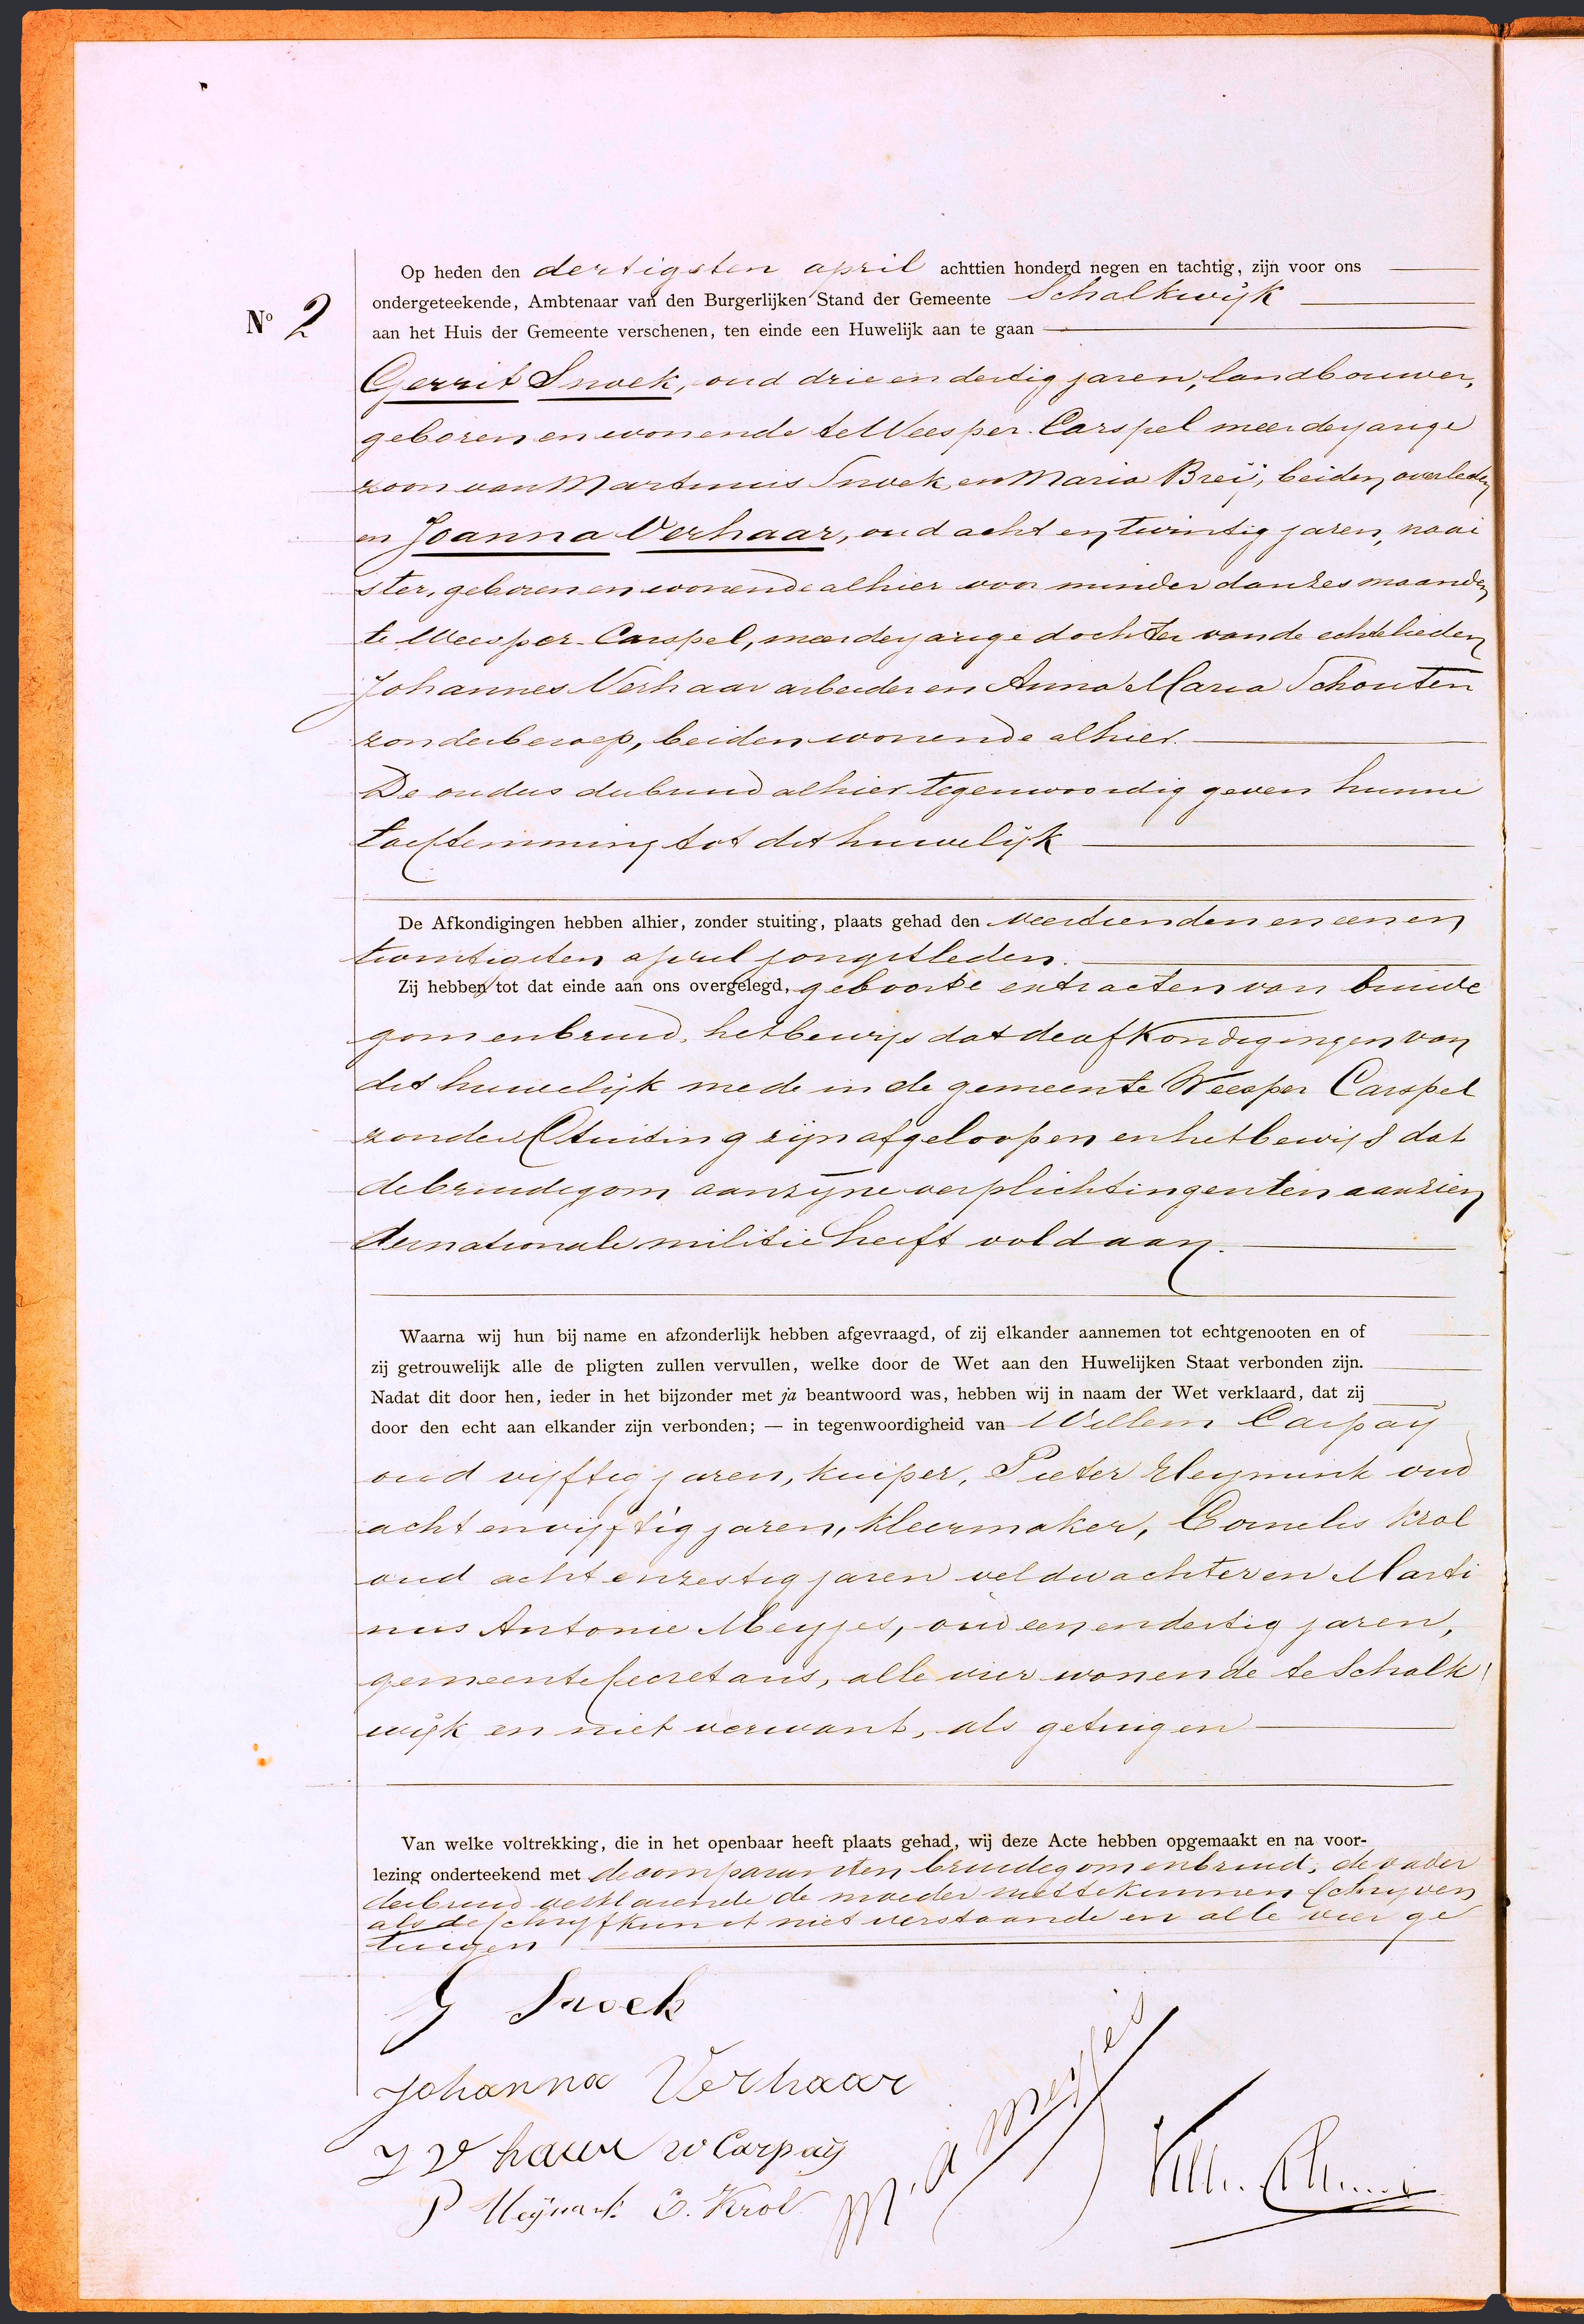 Op heden den dertigsten april achttien honderd negen en tachtig, zijn voor ons
ondergeteekende, Ambtenaar van den Burgerlijken Stand der Gemeente Schalkwijk
No 2
aan het Huis der Gemeente verschenen, ten einde een Huwelijk aan te gaan
Gerrit Snoek, oud drie en dertig jaren, landbouwer,
geboren en wonende te Weesper-Carspel meerderjarige
zoon van Martinus Snoek en Maria Breij, beiden overleden
en Joanna Verhaar, oud acht en twintig jaren, naai
ster, geboren en wonende alhier voor minder dan zes maanden
te Weesper-Carspel, meerderjarige dochter van de echtelieden
Johannes Verhaar arbeider en Anna Maria Schouten
zonder beroep, beiden wonende alhier.
De ouders der bruid alhier tegenwoordig geven hunne
toestemming tot dit huwelijk
De Afkondigingen hebben alhier, zonder stuiting, plaats gehad den veertienden en een en
twintigsten april jongstleden.
Zij hebben tot dat einde aan ons overgelegd, geboorte extracten van bruide
gom en bruid, het bewijs dat de afkondigingen van
dit huwelijk mede in de gemeente Weesper Carspel
zonder stuiting zijn afgeloopen en het bewijs dat
de bruidegom aan zijne verplichtingen ten aanzien
der nationale militie heeft voldaan.
Waarna wij hun bij name en afzonderlijk hebben afgevraagd, of zij elkander aannemen tot echtgenooten en of
zij getrouwelijk alle de pligten zullen vervullen, welke door de Wet aan den Huwelijken Staat verbonden zijn.
Nadat dit door hen, ieder in het bijzonder met ja beantwoord was, hebben wij in naam der Wet verklaard, dat zij
door den echt aan elkander zijn verbonden; — in tegenwoordigheid van Willem Carpay
oud vijftig jaren, kuiper, Pieter Heymink oud
acht en vijftig jaren, kleermaker, Cornelis Krol
oud acht en zestig jaren veldwachter en Marti
nus Antonie Meyjes, oud een en dertig jaren,
gemeentesecretaris, alle vier wonende te Schalk
wijk en niet verwant, als getuigen
Van welke voltrekking, die in het openbaar heeft plaats gehad, wij deze Acte hebben opgemaakt en na voor-
lezing onderteekend met de comparanten bruidegom en bruid, de vader
der bruid verklarende de moeder niet te kunnen schrijven
als de schrijfkunst niet verstaande en alle vier ge
tuigen
G Snoek
Johanna Verhaar
J V haar W Carpaij
P C. Krol
M. A Meyjes